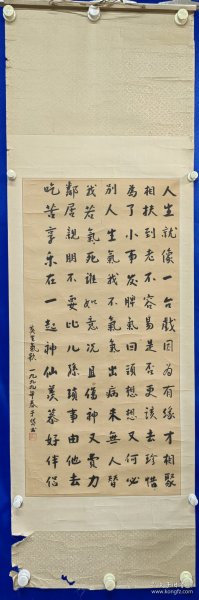 人生就像一台戏因为有缘才相聚
相扶到老不容易是否更该去珍惜
为了小事发脾气回头想想又何必
别人生氣我不氣氣出病来无人替
我若氣死谁如意况且伤神又费力
鄰居親朋不要比儿孫琐事由他去
吃苦享乐在一起神仙羡慕好伴侣
莫生氣歌 一九九九年春于